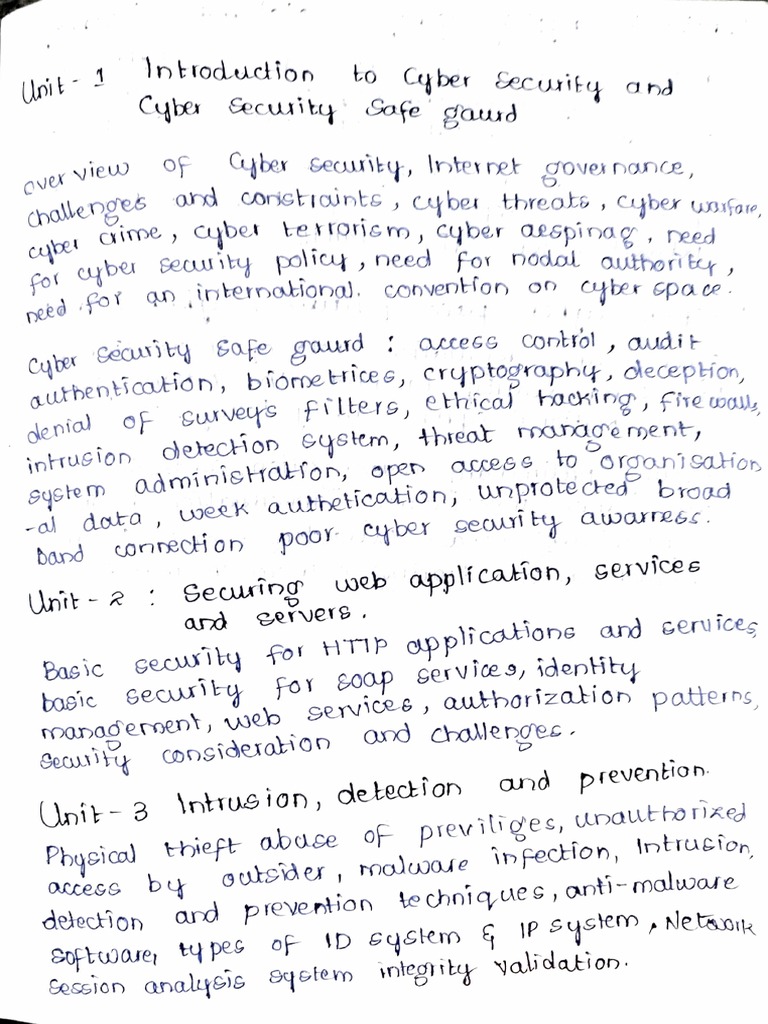 Unit - 1 Introduction to Cyber Security and
Cyber Security Safe gaurd
over view of Cyber security, Internet governance,
challenges and constraints, cyber threats, cyber warfare,
cyber crime, cyber terrorism, cyber aespinag, need
for cyber security policy, need for nodal authority,
need for an international. convention on cyber space.
Cyber Security Safe gaurd : access control, audit
authentication, biometrices, cryptography, deception,
denial of surveys filters, ethical hacking, firewalls,
intrusion detection system, threat management,
system administration, open access to organisation
-al data, week authetication, unprotected broad
band connection poor cyber security awarness.
Unit - 2 : Securing web application, services
and servers.
Basic security for HTTP applications and services,
basic security for soap services, identity
management, web services, authorization patterns,
security consideration and challenges.
Unit - 3 Intrusion, detection and prevention.
Physical thieft abuse of previliges, unauthorized
access by outsider, malware infection, Intrusion,
detection and prevention techniques, anti-malware
software, types of ID system & IP system, Network
session analysis system integrity validation.